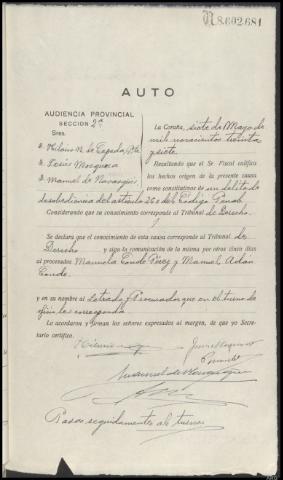 N 8.602.681
AUTO
AUDIENCIA PROVINCIAL
SECCIÓN 2ª
Sres.
D. Hilario N. de Cepeda, Pte
D. Jesús Mosquera
D. Manuel de
La Coruña, siete de Mayo de
mil novecientos treinta
y siete.
Resultando que el Sr. Fiscal califica
los hechos origen de la presente causa
como constitutivos de un delito de
desobediencia del artículo 260 del Código Penal
Considerando que su conocimiento corresponde al Tribunal de Derecho.
Se declara que el conocimiento de esta causa corresponde al Tribunal de
Derecho y siga la comunicación de la misma por otros cinco días
al procesados Manuela Conde Pérez y Manuel Adán
Conde
y en su nombre al Letrado y Procurador que en el turno de
oficio les corresponda
Lo acordaron y firman los señores expresados al margen, de que yo Secretario
certifico.
Manuel de
Pasos seguidamente al turno